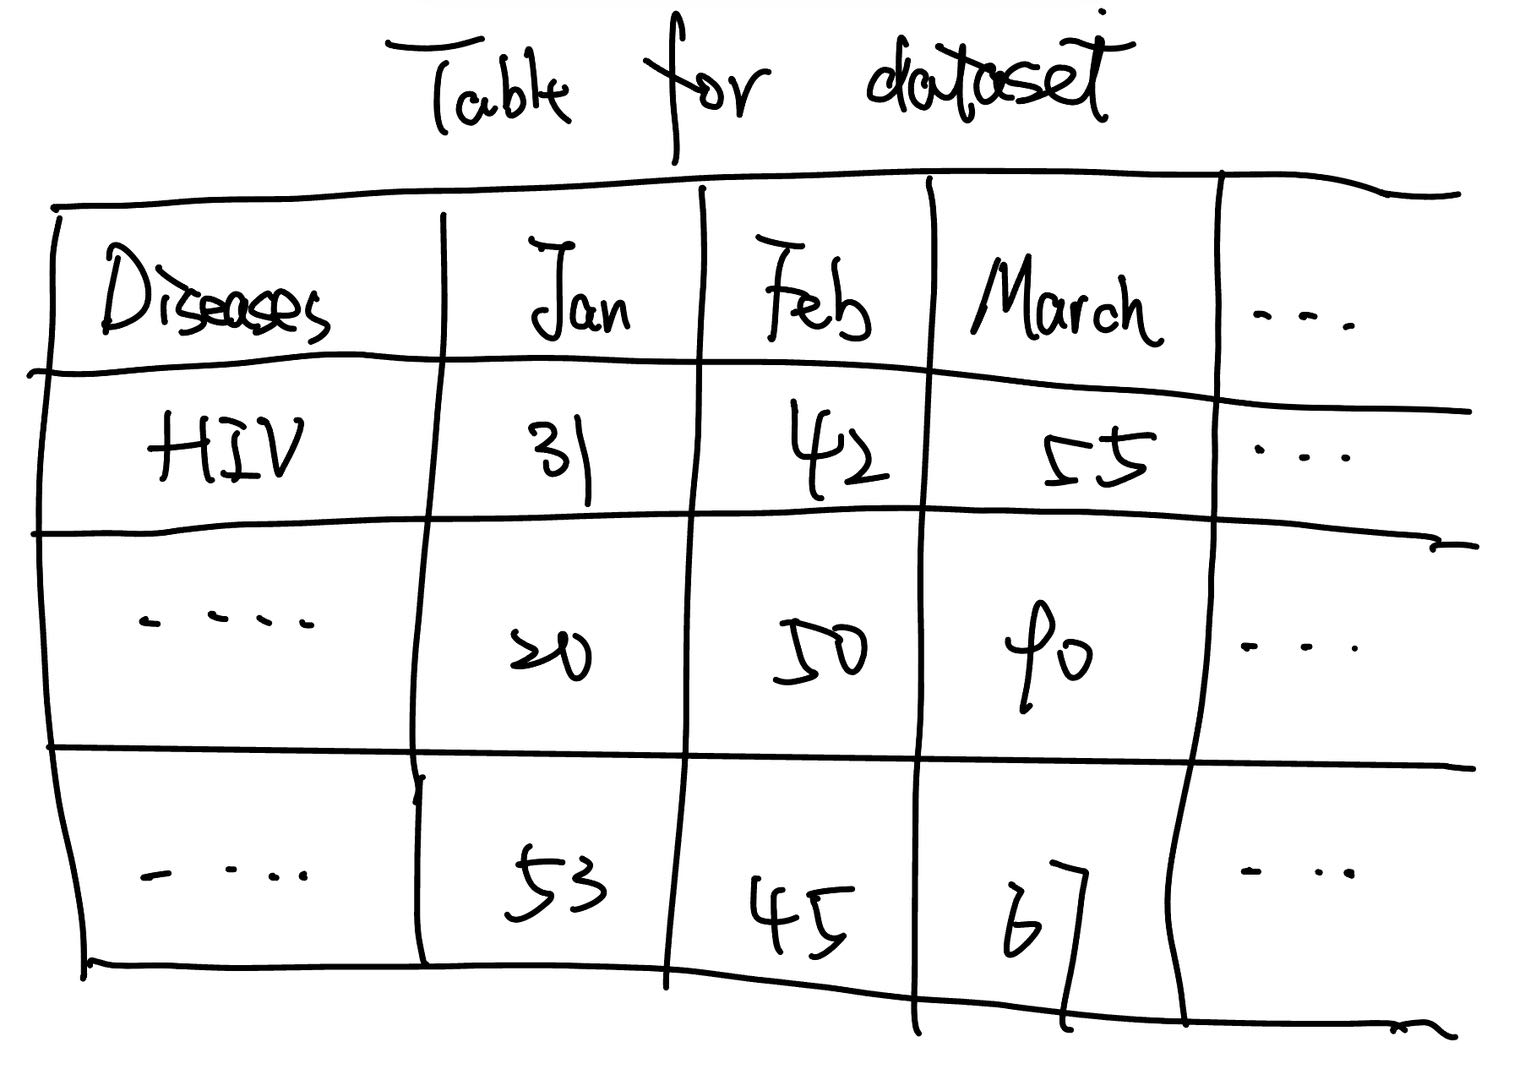 Table for dataset
Diseases Jan Feb March ....
HIV 31 42 55 ...
.... 20 50 90 ...
.... 53 45 67 ...